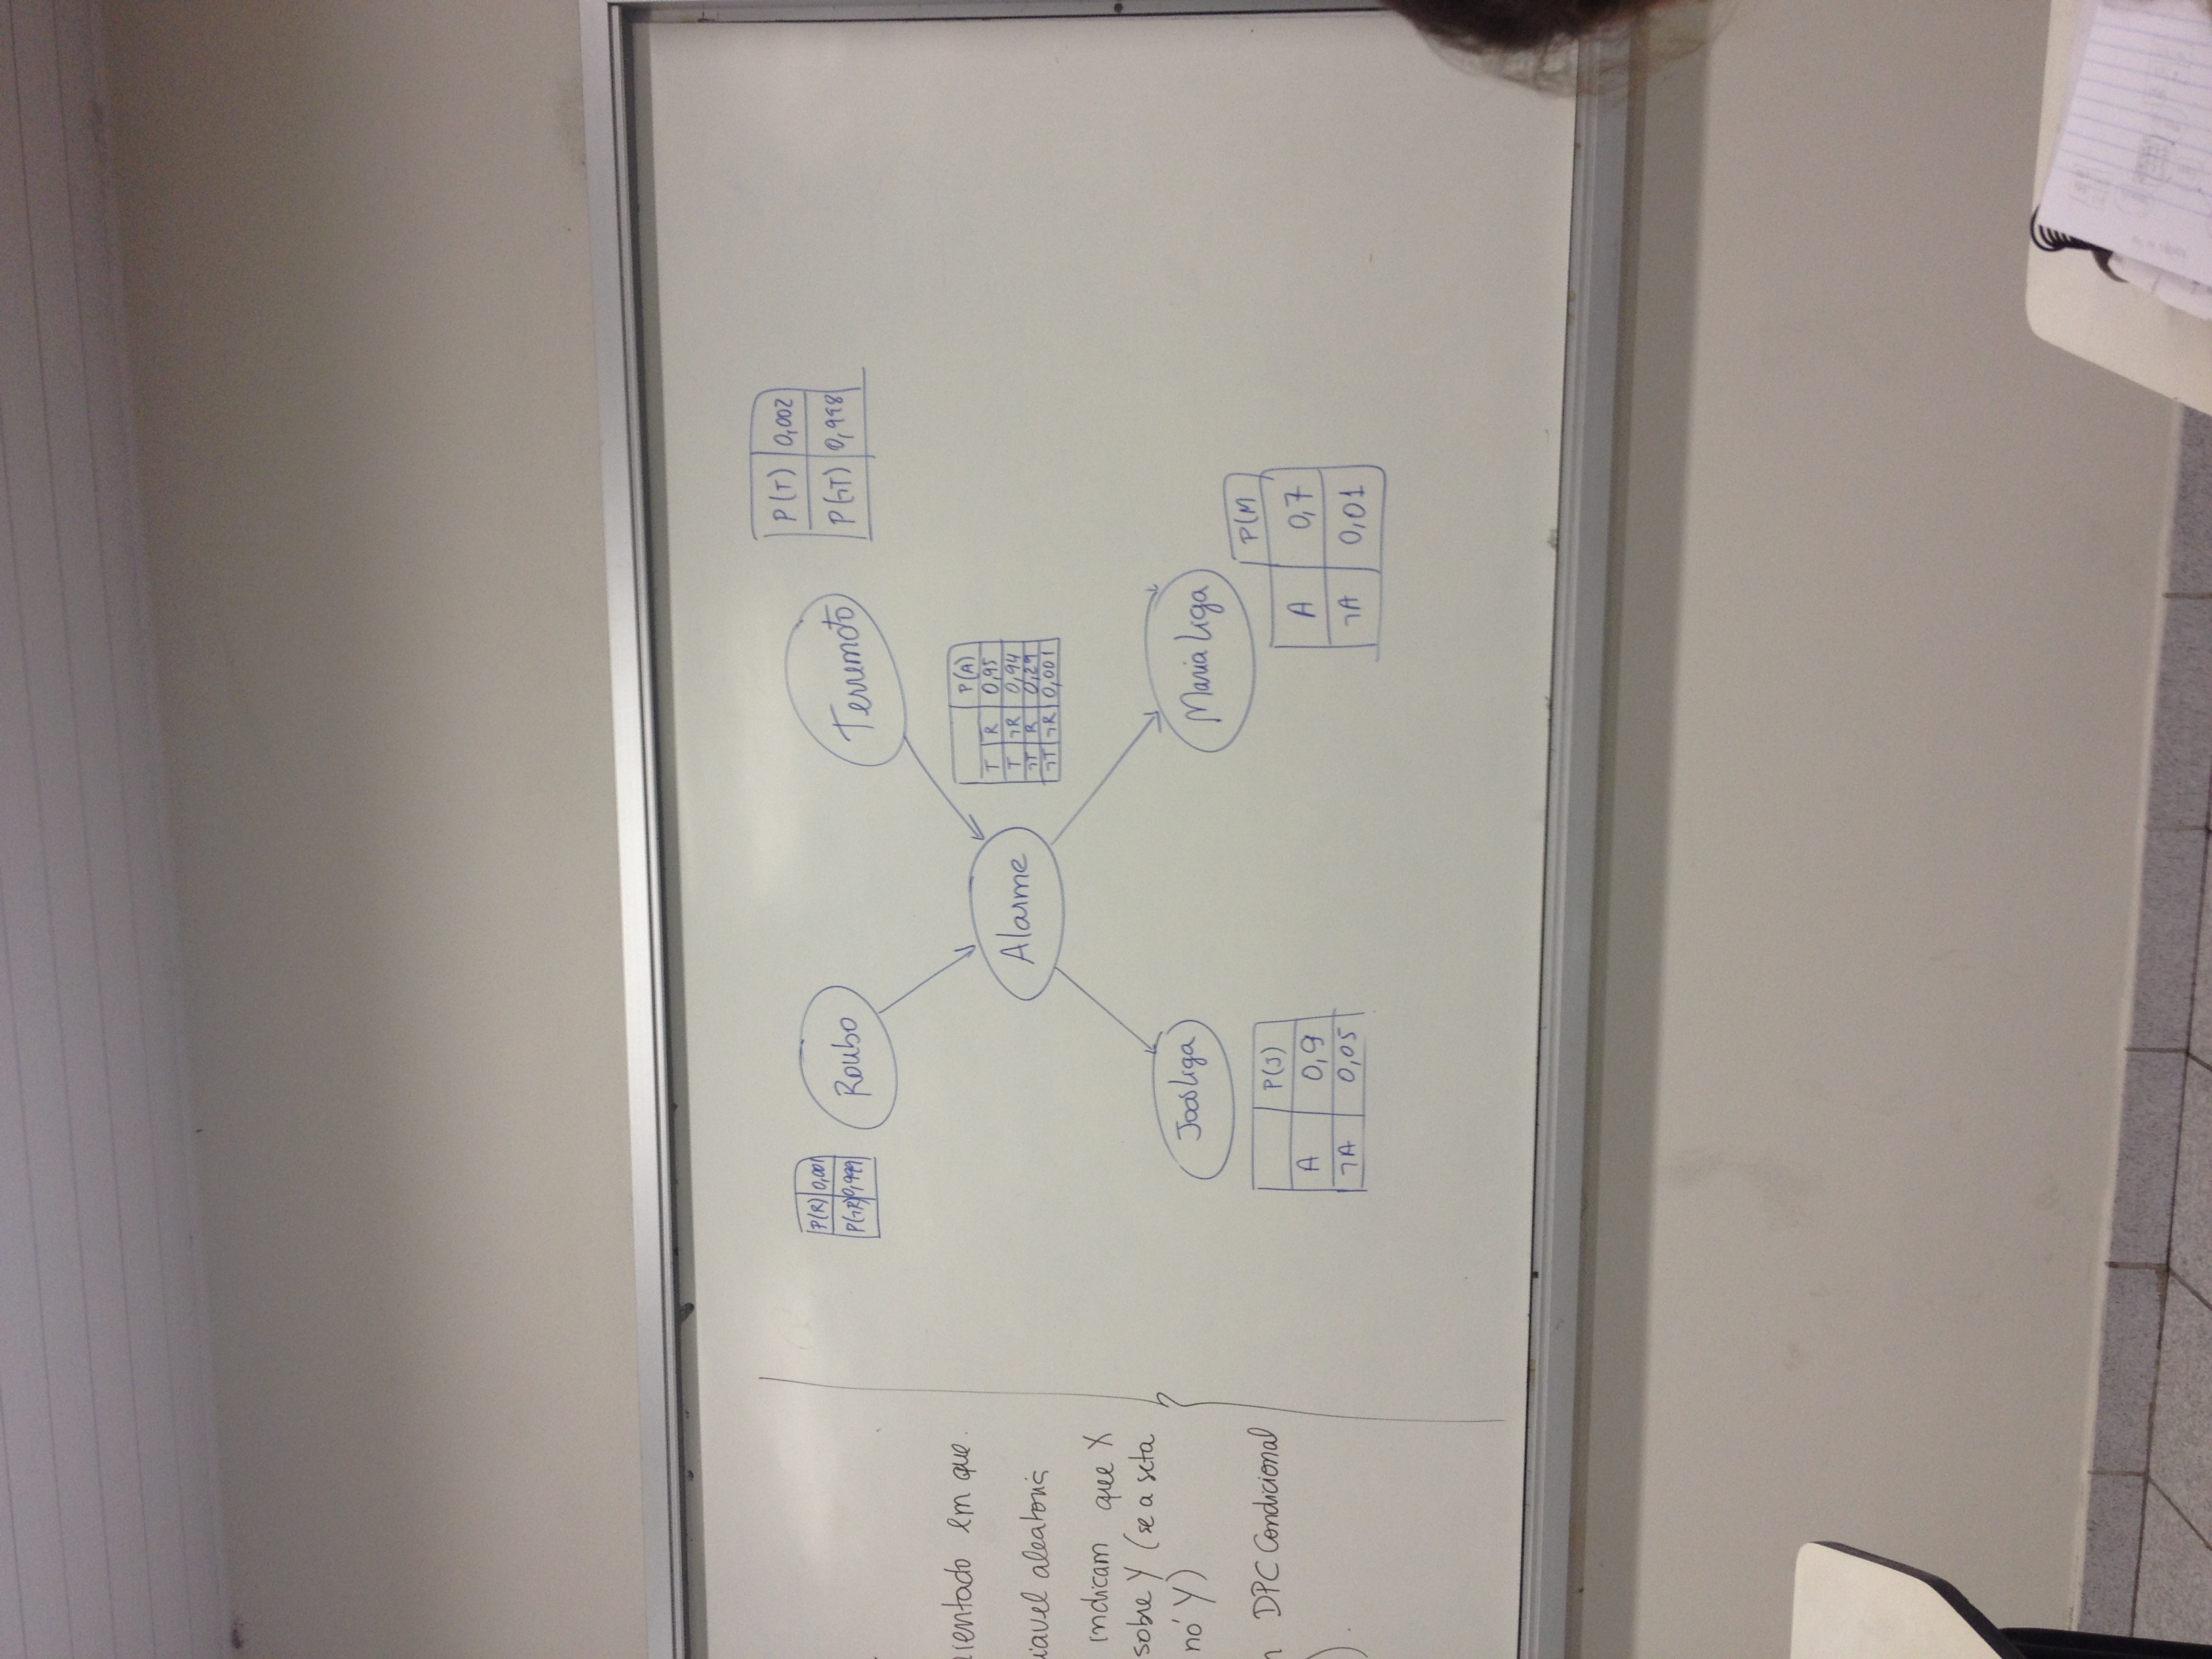 rientado em que.
iavel aleatoria
indicam que X
sobre Y (se a seta
nó Y)
DPC Condicional
).
P(R) 0,001
P(¬R) 0,999
Roubo
Terremoto
P(T) 0,002
P(¬T) 0,998
Alarme
P(A)
T R 0,95
T ¬R 0,94
¬T R 0,29
¬T ¬R 0,001
JoãoLiga
P(J)
A 0,9
¬A 0,05
Maria Liga
P(M
A 0,7
¬A 0,01